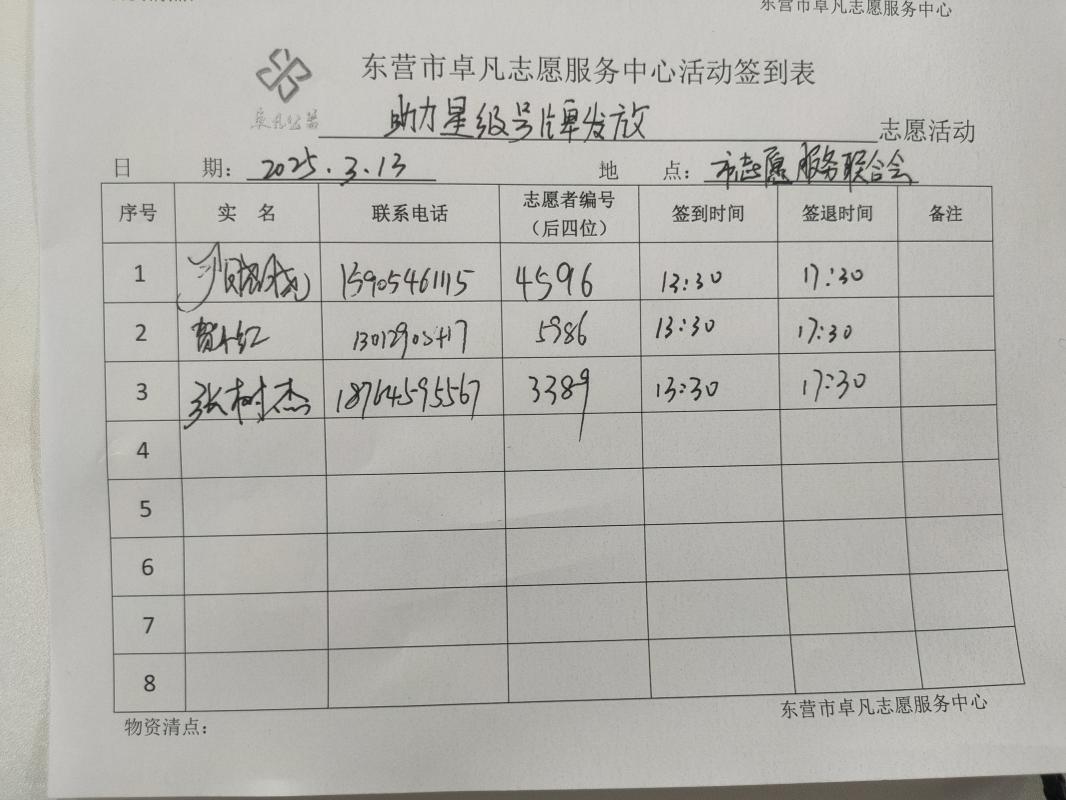 东营市卓凡志愿服务中心
东营市卓凡志愿服务中心活动签到表
卓凡公益 助力星级号牌发放 志愿活动
日 期：2025.3.13 地 点：市志愿服务联合会
序号 实 名 联系电话 志愿者编号（后四位） 签到时间 签退时间 备注
1 15905461115 4596 13:30 17:30
2 5986 13:30 17:30
3 张树杰 18764595567 3389 13:30 17:30
4
5
6
7
8
物资清点： 东营市卓凡志愿服务中心